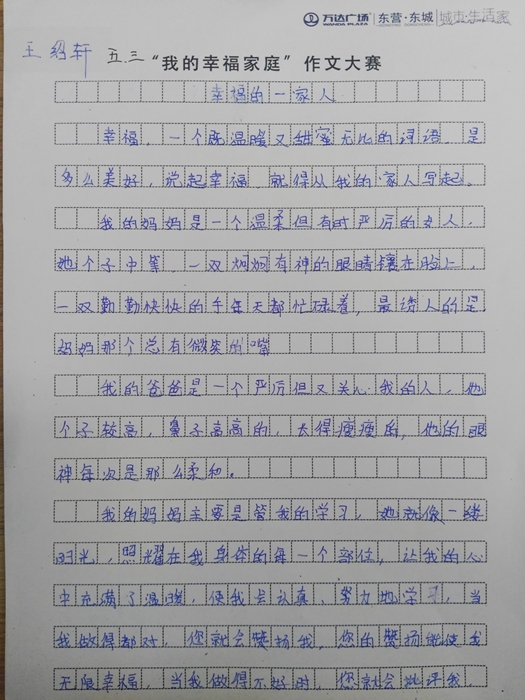 万达广场 WANDA PLAZA 东营·东城 城市·生活家
王绍轩 五.三 “我的幸福家庭”作文大赛
幸福的一家人
幸福,一个既温暖又甜蜜无比的词语。是
多么美好,说起幸福,就得从我的家人写起。
我的妈妈是一个温柔但有时严厉的女人,
她个子中等,一双炯炯有神的眼睛镶在脸上,
一双勤勤快快的手每天都忙碌着,最诱人的是
妈妈那个总有微笑的嘴
我的爸爸是一个严厉但又关心我的人,他
个子较高,鼻子高高的,太得瘦瘦的,他的眼
神每次是那么柔和。
我的妈妈主要是管我的学习,她就像一缕
阳光,照耀在我身体的每一个部位,让我的心
中充满了温暖,使我会认真、努力地学习,当
我做得都对,您就会赞扬我,您的赞扬就使我
无限幸福,当我做得不好时,您就会批评我,